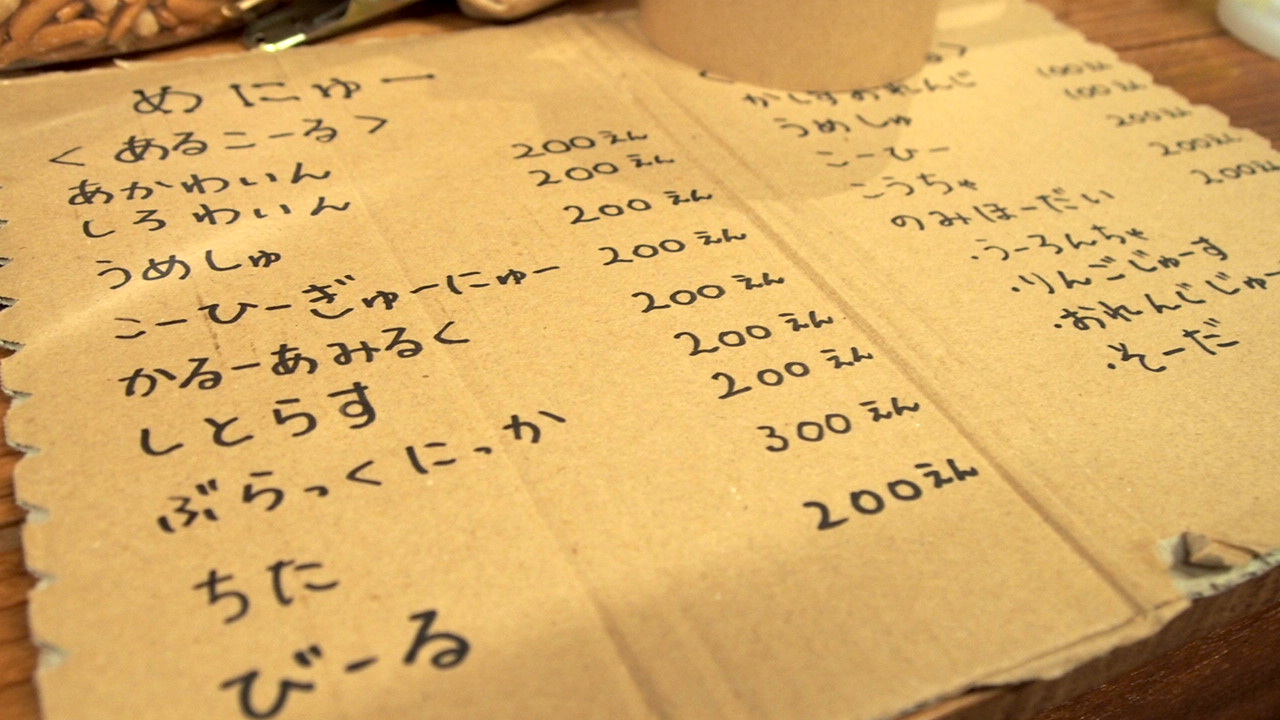 めにゅー
<あるこーる>
あかわいん 200えん
しろわいん 200えん
うめしゅ 200えん
こーひーぎゅーにゅー 200えん
かるーあみるく 200えん
しとらす 200えん
ぶらっくにっか 200えん
ちた 300えん
びーる 200えん
る>
かしすおれんじ 100えん
うめしゅ 100えん
こーひー 200えん
こうちゃ 200えん
のみほーだい 200えん
・うーろんちゃ
・りんごじゅーす
・おれんじじゅー
・そーだ